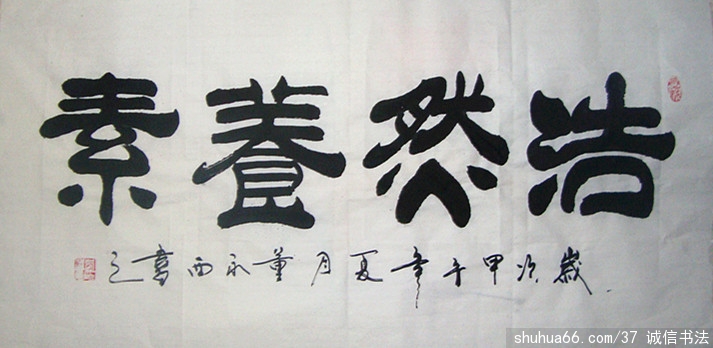 浩然養素
歲次甲午年夏月董永西書之
shuhua66.com/37 诚信书法